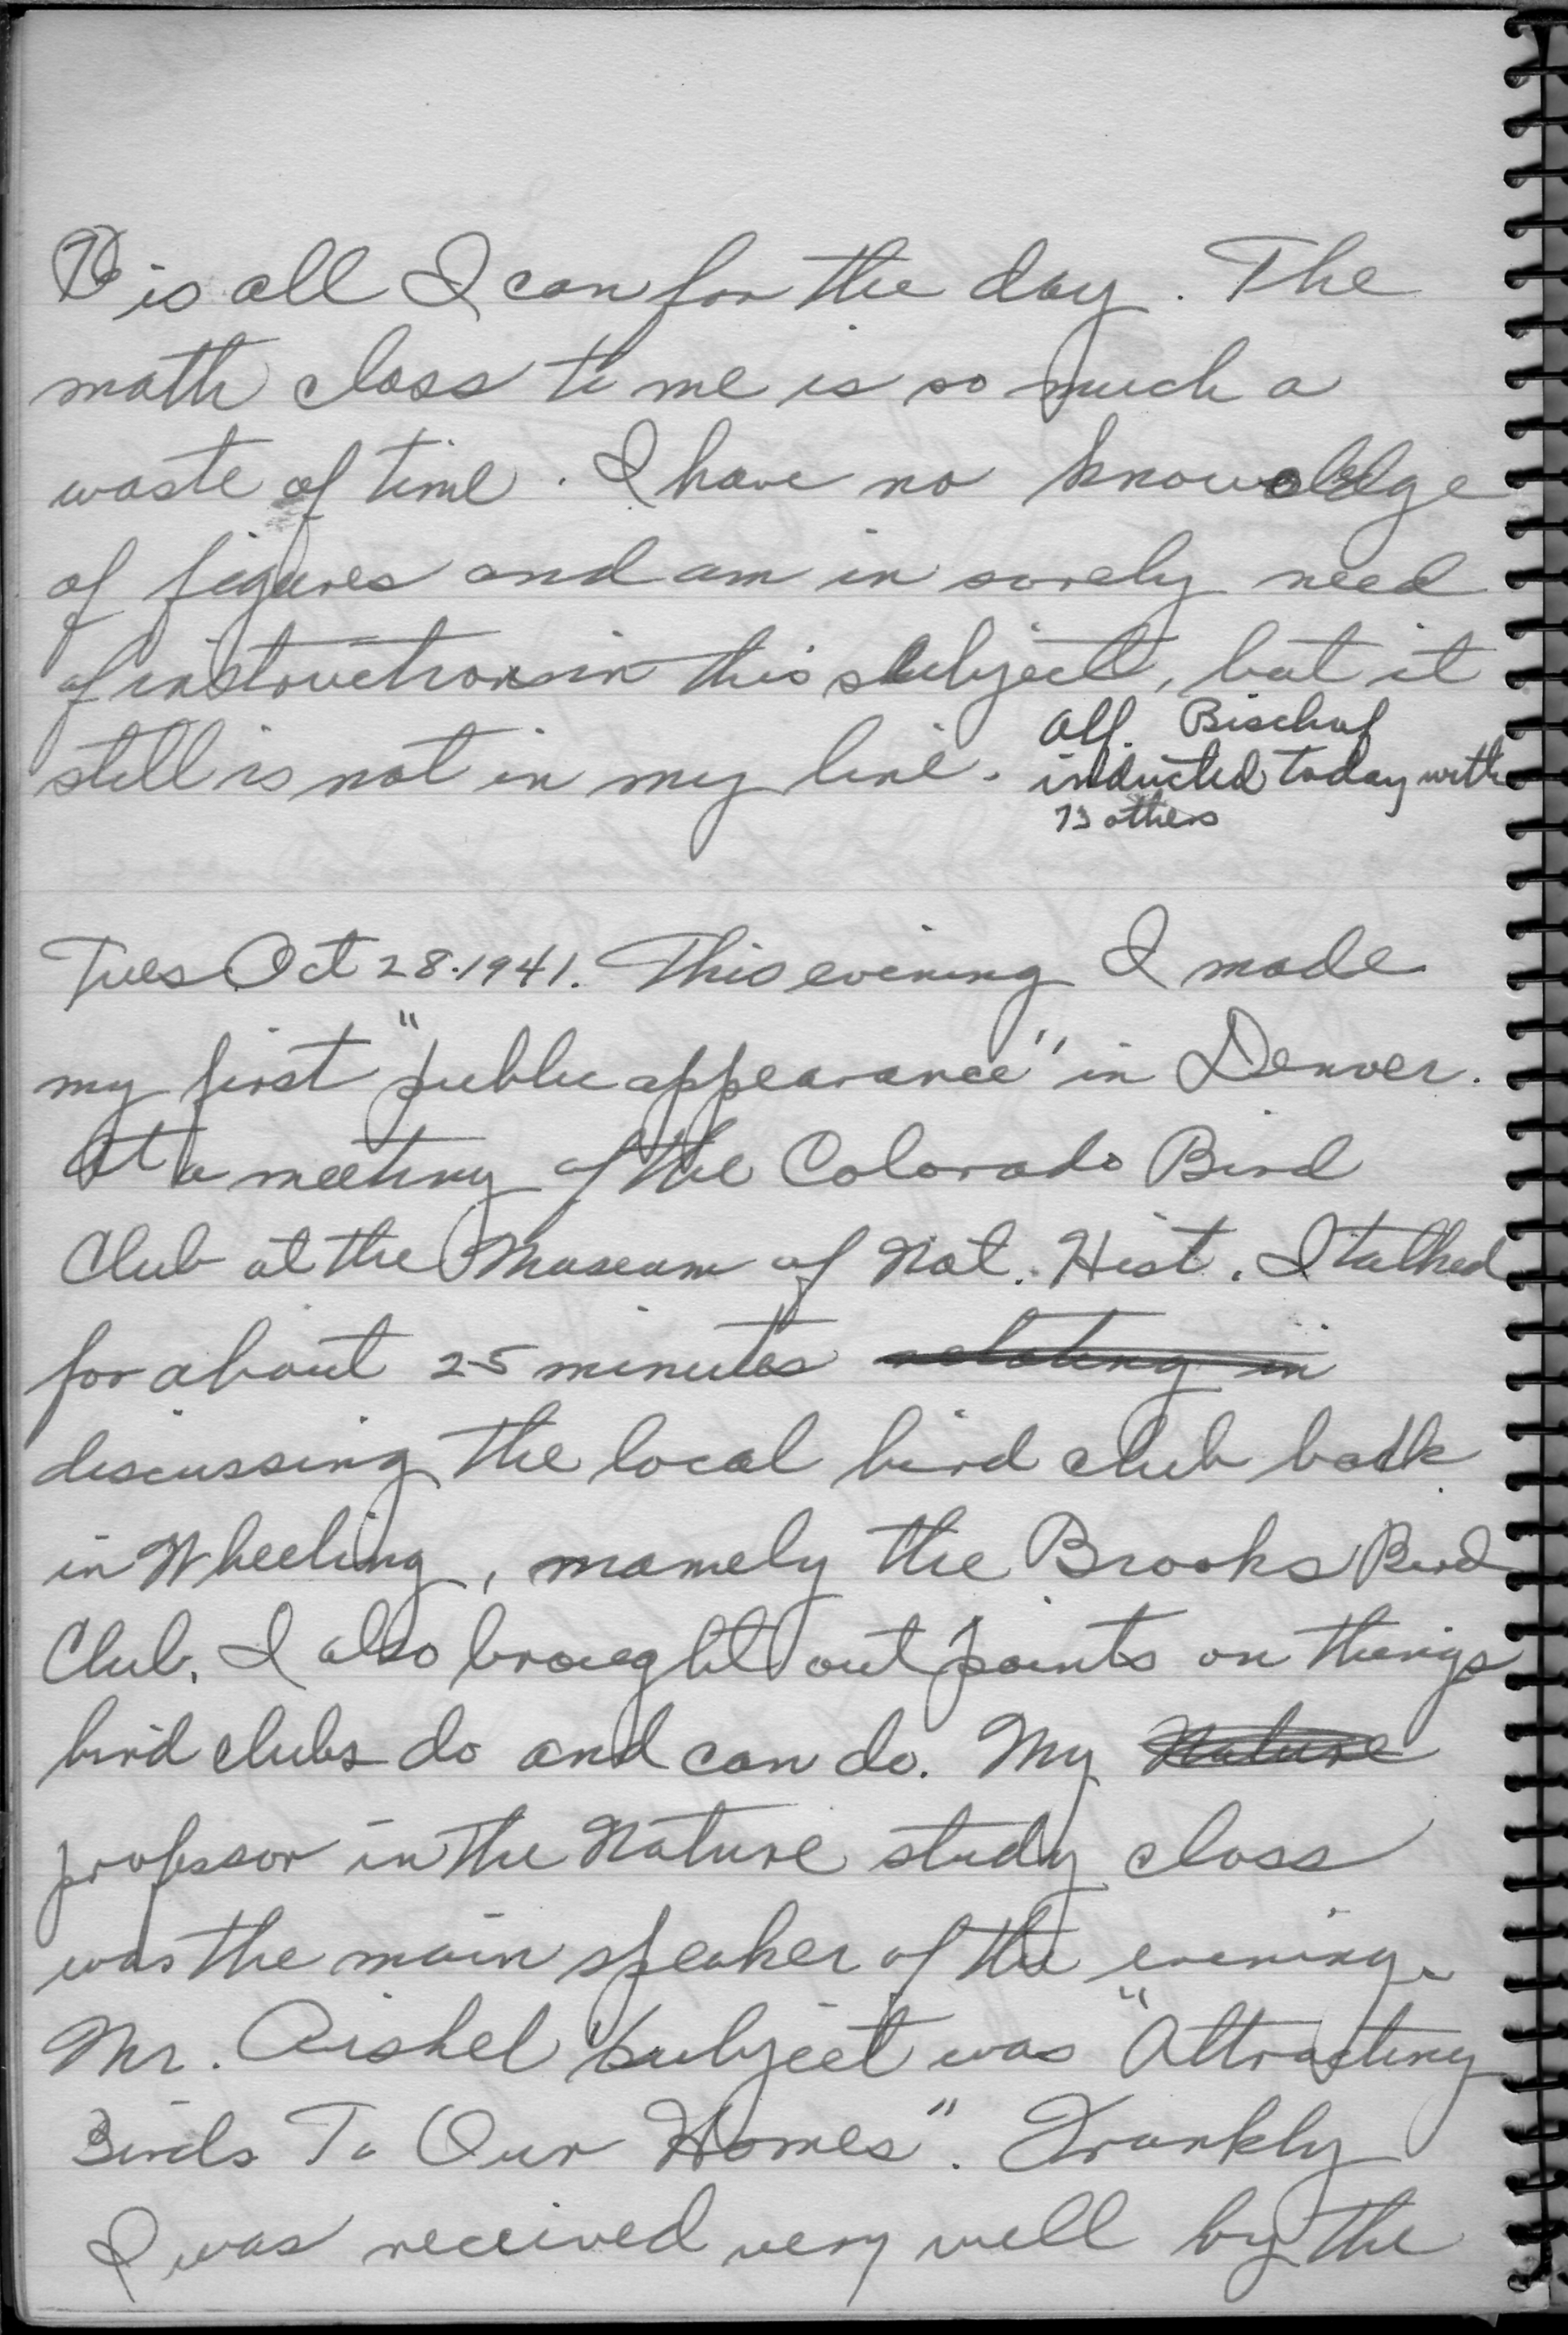 is all I can for the day. The
math class to me is so much a
waste of time. I have no knowoledge
of figures and am in sorely need
of instructions in this subject, but it
still is not in my line. Alf. Bischof
inducted today with
73 others
Tues Oct 28-1941. This evening I made
my first "public appearance" in Denver.
At a meeting of the Colorado Bird
Club at the Museum of Nat. Hist. I talked
for about 25 minutes relating in
discussing the local bird club back
in Wheeling, mamely the Brooks Bird
Club. I also brought out points on things
bird clubs do and can do. My Nature
professor in the Nature study class
was the main speaker of the evening.
Mr. subject was "Attracting
Birds To Our Homes". Frankly
I was received very well by the